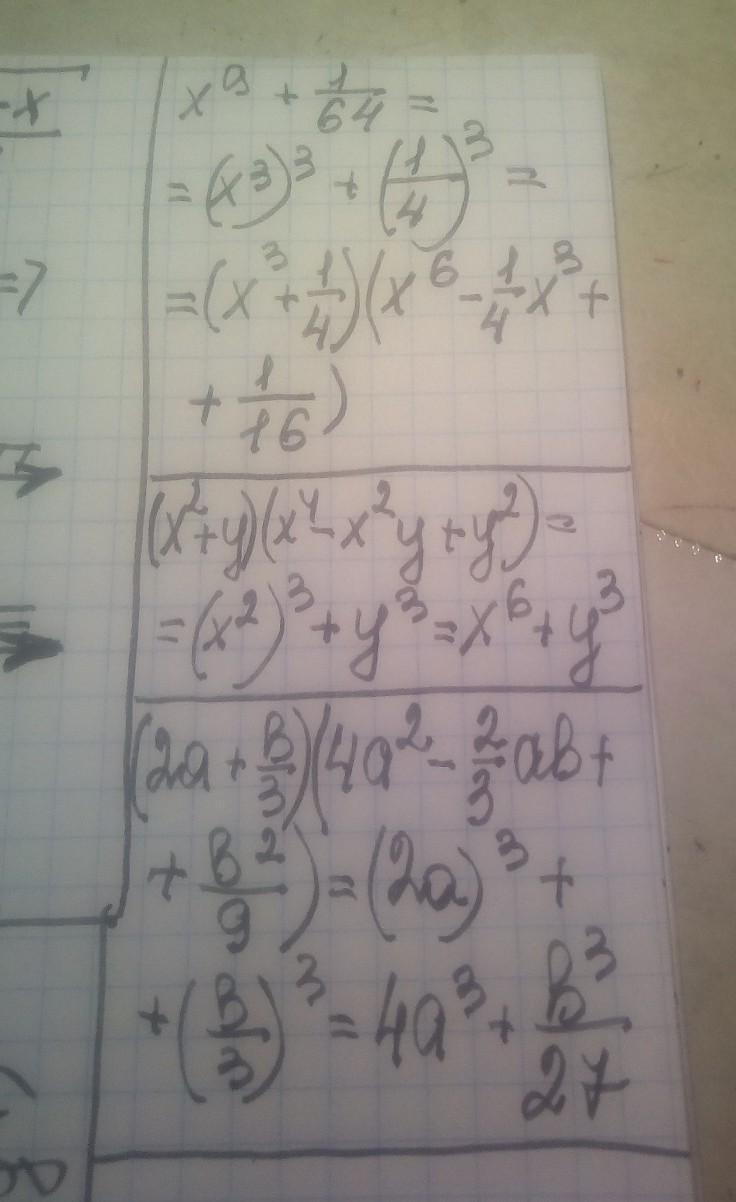 -x
x⁹ + 1/64 =
= (x³)³ + (1/4)³ =
=7
= (x³ + 1/4)(x⁶ - 1/4 x³ +
+ 1/16)
(x² + y)(x⁴ - x²y + y²) =
= (x²)³ + y³ = x⁶ + y³
(2a + b/3)(4a² - 2/3 ab +
+ b²/9) = (2a)³ +
+ (b/3)³ = 4a³ + b³/27